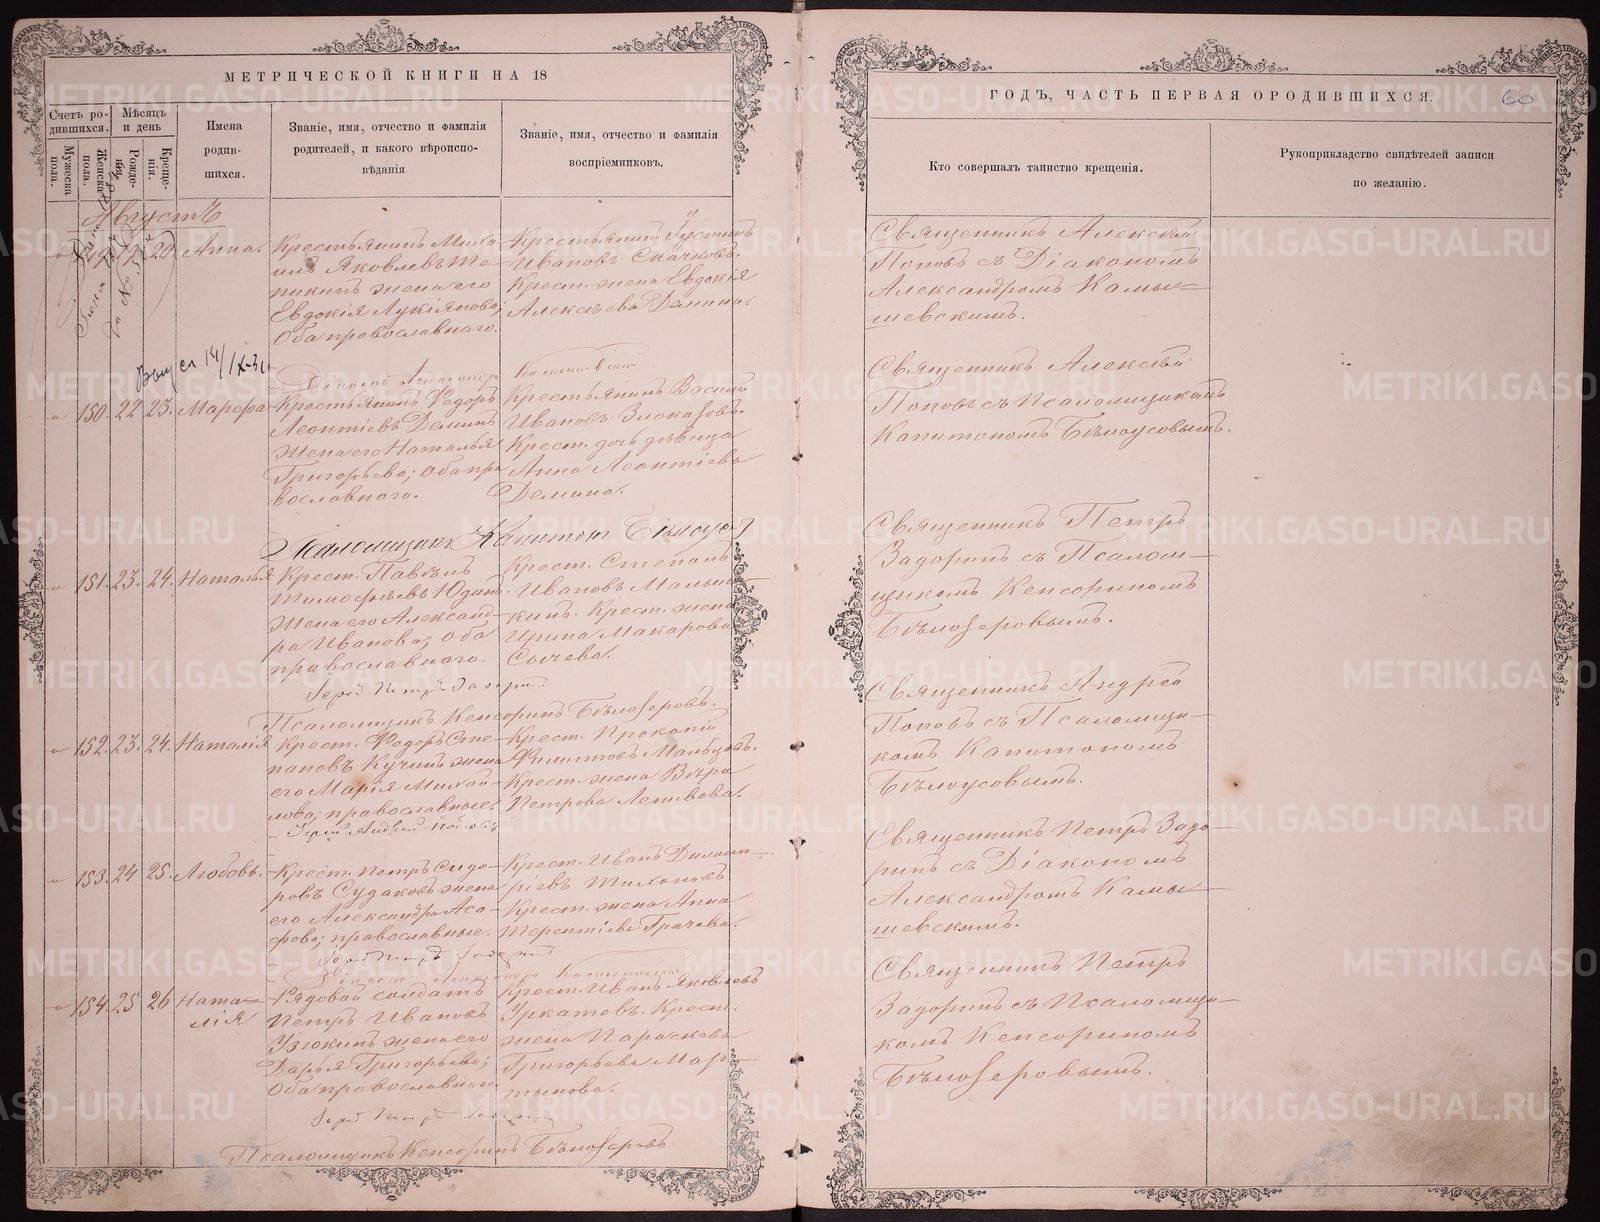 МЕТРИЧЕСКОЙ КНИГИ НА 18
Счетъ ро-
дившихся.
Мужеска
пола.
Женска
пола.
Мѣсяцъ
и день
Рожде-
нія.
Креще-
нія.
Имена
родив-
шихся.
Званіе, имя, отчество и фамилія
родителей, и какого вѣроиспо-
вѣданія
Званіе, имя, отчество и фамилія
воспріемниковъ.
Августъ
149. 19. 20. Анна.
Крестьянинъ Миха-
илъ Яковлевъ
жена его
Евдокія Лукіянова;
Оба православнаго.
Крестьянинъ Іустинъ
Ивановъ Скачковъ.
Крест. жена Евдокія
Алексѣева Демина.
14/IX-31
150. 22 23. Марѳа
Крестьянинъ Ѳедоръ
Леонтіевъ Деминъ
жена его Наталья
Григорьева; Оба пра
вославнаго.
Крестьянинъ Василій
Ивановъ Злоказовъ.
Крест. дочь дѣвица
Анна Леонтіева
Демина.
Псаломщикъ Капитонъ Бѣлоусовъ
151. 23. 24. Наталья
Крест. Павелъ
Тимофѣевъ Юдинъ.
Жена его Александ-
ра Иванова; Оба
православнаго.
Крест. Степанъ
Ивановъ Малы-
кинъ. Крест. жена
Ирина Макарова
Сычева.
Іерей Петръ Задоринъ
Псаломщикъ Кенсоринъ Бѣлозеровъ.
152. 23. 24. Наталія
Крест. Ѳедоръ Сте-
пановъ Кучинъ жена
его Марія Михай-
лова; православные.
Крест. Прокопій
Филиповъ Мальцовъ.
Крест. жена Вѣра
Петрова Ленивова.
Іерей Андрей Поповъ
153. 24 25. Любовь.
Крест. Петръ Сидо-
ровъ Судаковъ жена
его Александра Аса-
фова; православные.
Крест. Иванъ Димит-
ріевъ Тихоновъ
Крест. жена Анна
Терентіева Грачева.
Іерей Петръ Задоринъ
154. 25 26 Ната-
лія
Рядовой солдатъ
Петръ Ивановъ
Узюкинъ жена его
Дарья Григорьева;
Оба православнаго
Крест. Иванъ Яковлевъ
Уркатовъ. Крест.
жена Параскева
Григорьева Мар-
тынова.
Іерей Петръ Задоринъ
Псаломщикъ Кенсоринъ Бѣлозеровъ
ГОДЪ, ЧАСТЬ ПЕРВАЯ ОРОДИВШИХСЯ.
60
Кто совершалъ таинство крещенія.
Рукоприкладство свидѣтелей записи
по желанію.
Священникъ Алексѣй
Поповъ съ Діакономъ
Александромъ Камы-
шевскимъ.
Священникъ Алексѣй
Поповъ съ Псаломщикомъ
Капитономъ Бѣлоусовымъ.
Священникъ Петръ
Задоринъ съ Псалом-
щикомъ Кенсориномъ
Бѣлозеровымъ.
Священникъ Андрей
Поповъ съ Псаломщи-
комъ Капитономъ
Бѣлоусовымъ.
Священникъ Петръ Задо-
ринъ съ Діакономъ
Александромъ Камы-
шевскимъ.
Священникъ Петръ
Задоринъ съ Псаломщи-
комъ Кенсориномъ
Бѣлозеровымъ.
METRIKI.GASO-URAL.RU